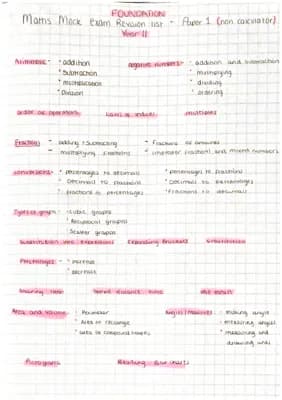 FOUNDATION
Maths Mock Exam Revision list - Paper 1 (non calculator)
Year 11
Arithmetic - • addition
• Subtraction
• multiplication
• Division
negative numbers - • addition and subtraction
• multiplying
• dividing
• ordering
order of operations laws of indices multiples
Fractions - adding + Subtracting - Fractions of amounts
- multiplying fractions - improper fractions and mixed numbers
conversions • percentages to decimals • percentages to fractions
• Decimals to fractions • Decimals to percentages
• fractions to percentages • fractions to decimals
Types of graphs - • cubic graphs
• Reciprocal graphs
• Scatter graphs
Substitution into expressions expanding brackets
Percentages - • increase
• decrease
Sharing ratio
Area and volume - • Perimeter
• Area of rectangle
• area of compound shapes
Angles / Measures - • making angles
• measuring angles
• measuring and
drawing lines
Pictograms Reading Bar charts